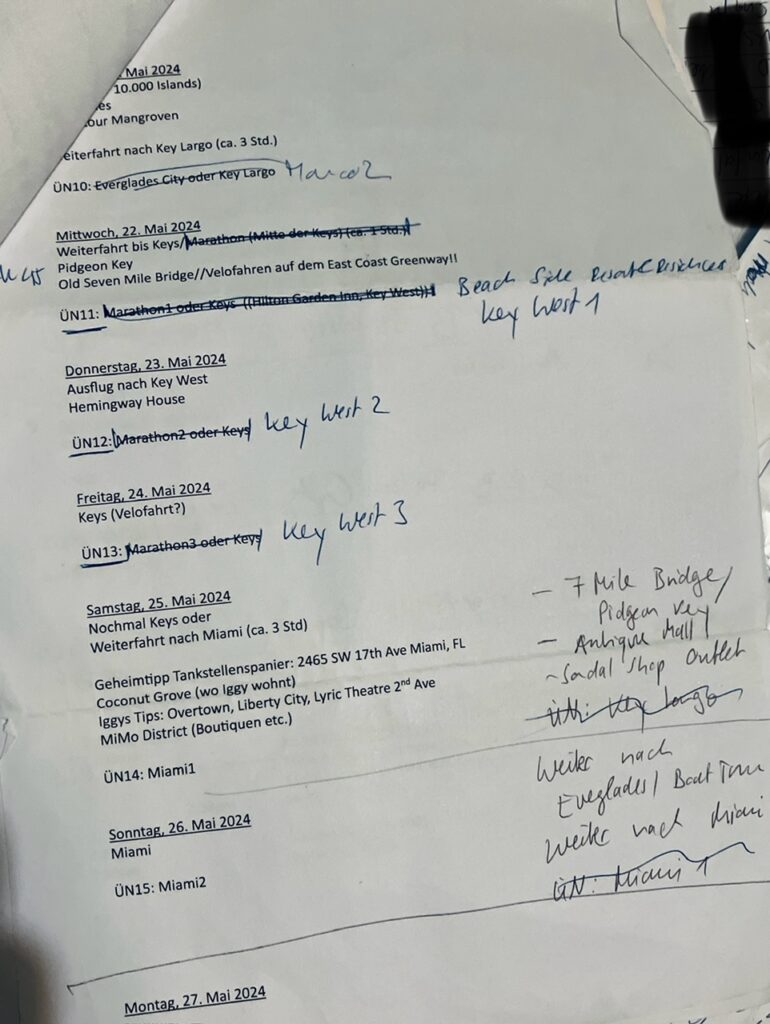 Mai 2024
10.000 Islands)
es
our Mangroven
eiterfahrt nach Key Largo (ca. 3 Std.)
ÜN10: Everglades City oder Key Largo Marco2
Mittwoch, 22. Mai 2024
Weiterfahrt bis Keys/Marathon (Mitte der Keys) (ca. 1 Std.)
Pidgeon Key
Old Seven Mile Bridge//Velofahren auf dem East Coast Greenway!!
ÜN11: Marathon1 oder Keys ((Hilton Garden Inn, Key West)) Beach Side Resort Residences
Key West 1
Donnerstag, 23. Mai 2024
Ausflug nach Key West
Hemingway House
ÜN12: Marathon2 oder Keys Key West 2
Freitag, 24. Mai 2024
Keys (Velofahrt?)
ÜN13: Marathon3 oder Keys Key West 3
Samstag, 25. Mai 2024
Nochmal Keys oder
Weiterfahrt nach Miami (ca. 3 Std)
Geheimtipp Tankstellenspanier: 2465 SW 17th Ave Miami, FL
Coconut Grove (wo Iggy wohnt)
Iggys Tips: Overtown, Liberty City, Lyric Theatre 2nd Ave
MiMo District (Boutiquen etc.)
ÜN14: Miami1
– 7 Mile Bridge/
Pidgeon Key
– Antique Mall
– Sandal Shop Outlet
ÜN: Key Largo
Weiter nach
Everglades/ Boat Tour
Weiter nach Miami
ÜN: Miami 1
Sonntag, 26. Mai 2024
Miami
ÜN15: Miami2
Montag, 27. Mai 2024